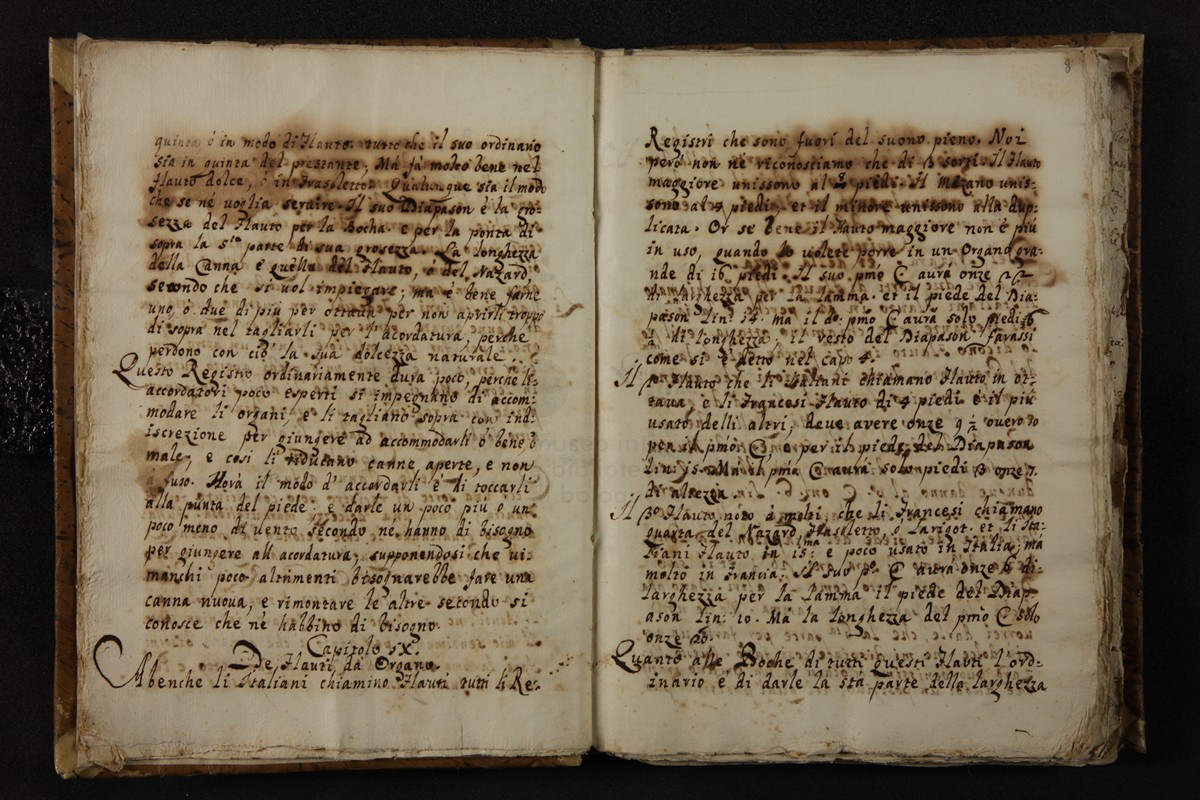 quinta è in modo di Flauto. tutto che il suo ordinario
sia in quinta del prestante; Mà fà molto bene nel
flauto dolce, è in Frasoletto. Qualunque sia il modo
che se né voglia servire. Il suo Diapason è la gro-
sezza del Flauto per la Bocha. e per la ponta di
sopra la 5ta parte di sua grosezza. La longhezza
della Canna è quella del Flauto, o del Nazard
secondo che si vol impiegare; ma è bene farne
uno, ò due di più per ottava per non aprirli troppo
di sopra nel tagliarli per l'acordatura, perche
perdono con ciò la sua dolcezza naturale.
Questo Registro ordinariamente dura poco, perche li
accordatori poco esperti si impegnano di accom:
modare li organi, e li tagliano sopra con ind:
iscrezione per giungere ad accommodarli ò bene, ò
male, e cosi li riducano canne, aperte, e non
à fuso. Horà il modo d'accordarli è di toccarli
alla punta del piede. e darle un poco più ò un
poco meno di vento secondo né hanno di bisogno
per giungere all'acordatura, supponendosi che vi
manchi poco altrimenti bisognarebbe fare una
canna nuova, e rimontare le altre secondo si
conosce che né habbino di bisogno.
Capitolo IX.
De Flauti da Organo.
Abenche li Italiani chiamino Flauti tutti li Re-
8
Registri che sono fuori del suono pieno. Noi
però non né riconosciamo che di 3 sorti. Il Flauto
maggiore unissono al 8 piedi. Il Mezano unis:
sono al 4 piedi, et il minore unissono alla dup:
licata. Or se bene il flauto maggiore non è più
in uso, quando lo volete porre in un Organo gra-
nde di 16 piedi. Il suo pmo C aurà onze
di larghezza per la lamma. et il piede del Dia:
pason lin: 14. ma il do pmo C aurà solo piedi 6
1/2 di longhezza; il resto del Diapason farassi
come si è detto nel capo 4.
Il Flauto che li Italiani chiamano Flauto in ot:
tava, e li Francesi Flauto di 4 piedi è il più
usato delli altri, deve avere onze 9 1/2 overo 10
per il pmo C, e per il piede del Diapason
lin: 15. Mà il pmo C aurà solo piedi 3 onze 7.
di altezza.
Il 3o Flauto noto à molti, che li Francesi chiamano
quarta del Nazard, Flasoletto, ò Larigot. et li Ita-
liani Flauto in 15: è poco usato in Italia, mà
molto in Francia. Il suo po C aurà onze 6 di
larghezza per la lamma il piede del Diap:
ason lin: 10. Mà la longhezza del pmo C solo
onze 20.
Quanto alle Boche di tutti questi Flauti l'ord:
inario è di darle la 5ta parte della larghezza